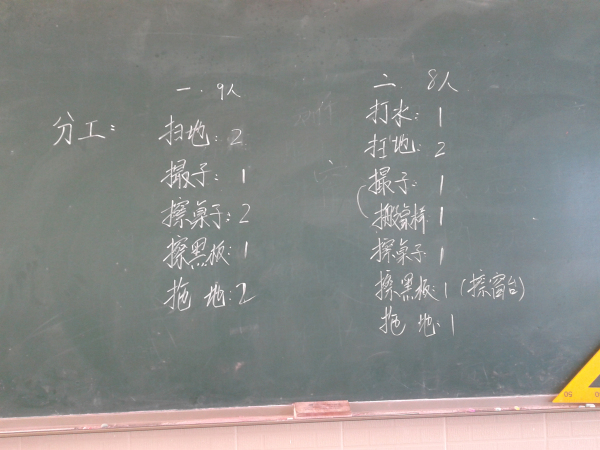 分工:
一. 9人
扫地: 2
撮子: 1
擦桌子: 2
擦黑板: 1
拖地: 2
二. 8人
打水: 1
扫地: 2
撮子: 1
搬桌椅 1
擦桌子: 1
擦黑板: 1 (擦窗台)
拖地: 1
50